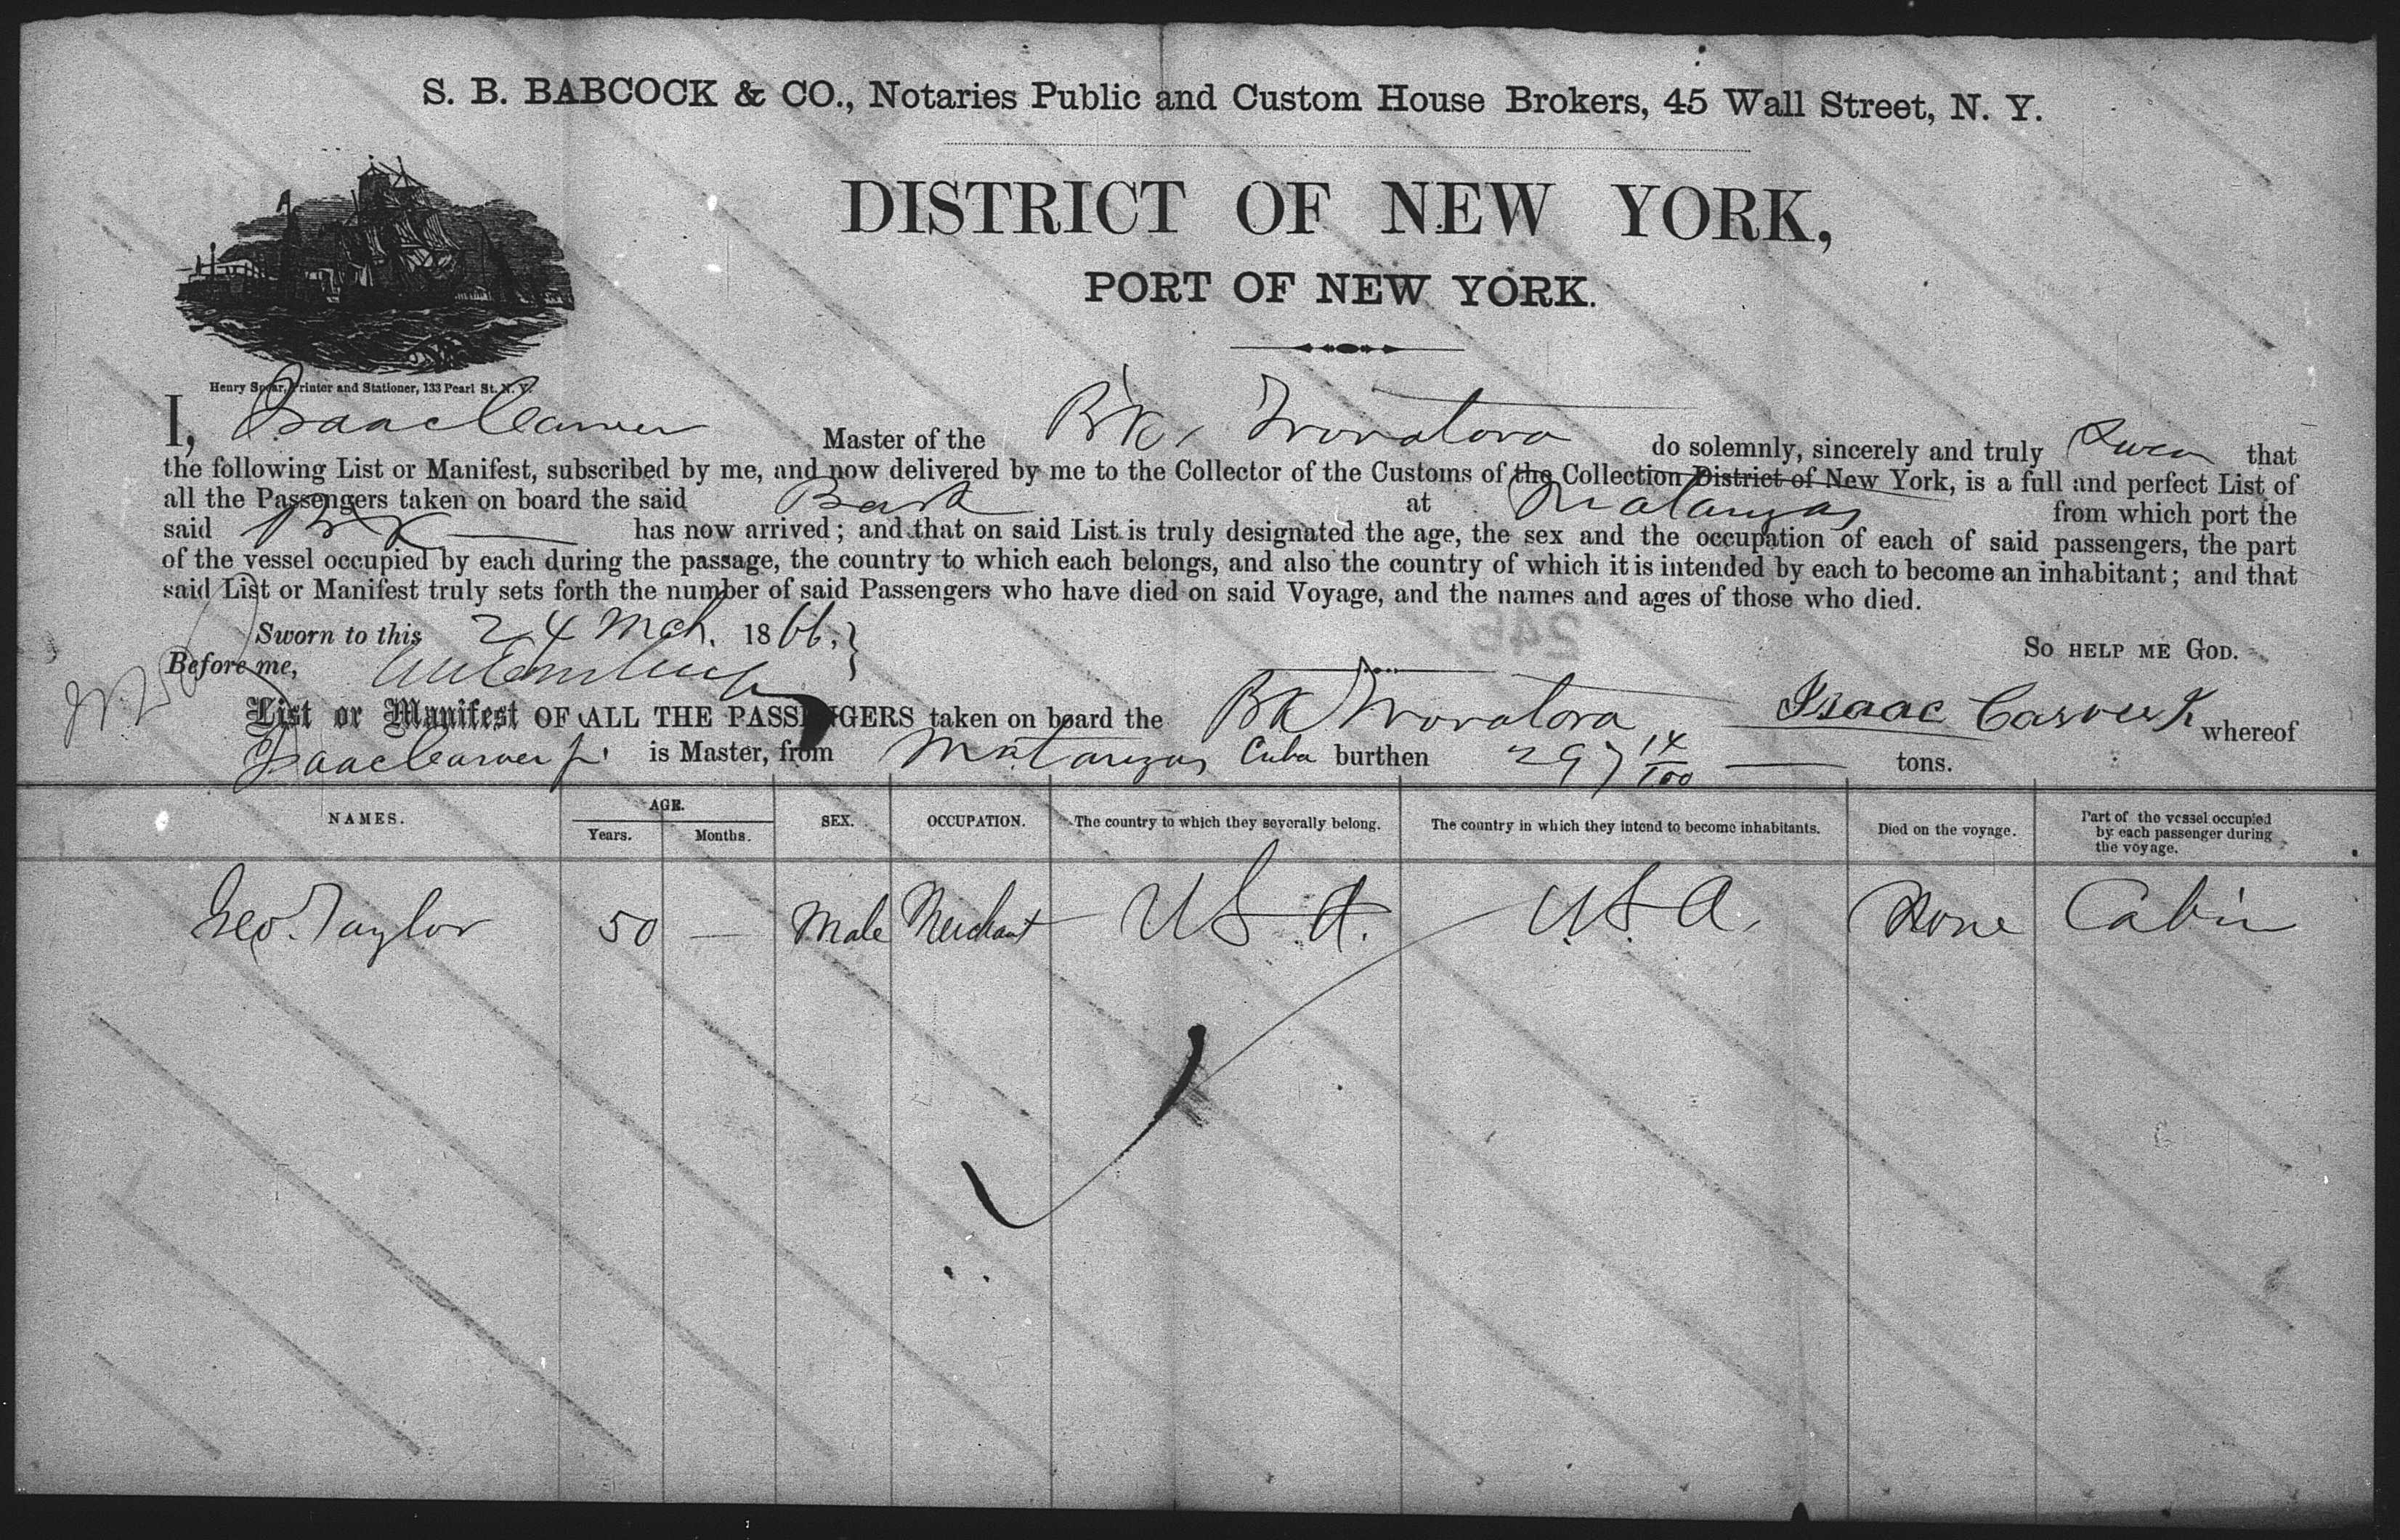 S. B. BABCOCK & CO., Notaries Public and Custom House Brokers, 45 Wall Street, N. Y.
DISTRICT OF NEW YORK,
PORT OF NEW YORK.
Henry Spear, Printer and Stationer, 133 Pearl St. N. Y.
I, Isaac Carver Master of the Bk. Trovatora do solemnly, sincerely and truly Swear that
the following List or Manifest, subscribed by me, and now delivered by me to the Collector of the Customs of the Collection District of New York, is a full and perfect List of
all the Passengers taken on board the said Bark at Matanzas from which port the
said Bk has now arrived; and that on said List is truly designated the age, the sex and the occupation of each of said passengers, the part
of the vessel occupied by each during the passage, the country to which each belongs, and also the country of which it is intended by each to become an inhabitant; and that
said List or Manifest truly sets forth the number of said Passengers who have died on said Voyage, and the names and ages of those who died.
Sworn to this 24 Mch. 1866. So HELP ME GOD.
246
Before me,
List or Manifest OF ALL THE PASSENGERS taken on board the Bk Trovatora Isaac Carver whereof
Isaac Carver Jr. is Master, from Matanzas Cuba burthen 297 14/100 tons.
NAMES. AGE. Years. Months. SEX. OCCUPATION. The country to which they severally belong. The country in which they intend to become inhabitants. Died on the voyage. Part of the vessel occupied by each passenger during the voyage.
Geo. Taylor 50 — Male Merchant U S A. U.S.A. None Cabin